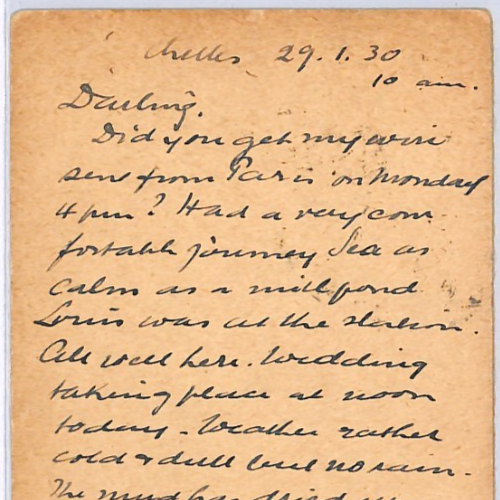 Chelles 29.1.30
10 am.
Darling,
Did you get my wire
sent from Paris on Monday
4 pm? Had a very com
fortable journey Sea as
calm as a millpond
Louis was at the station.
All well here. Wedding
taking place at noon
today. Weather rather
cold & dull but no rain.
The mud has dried up